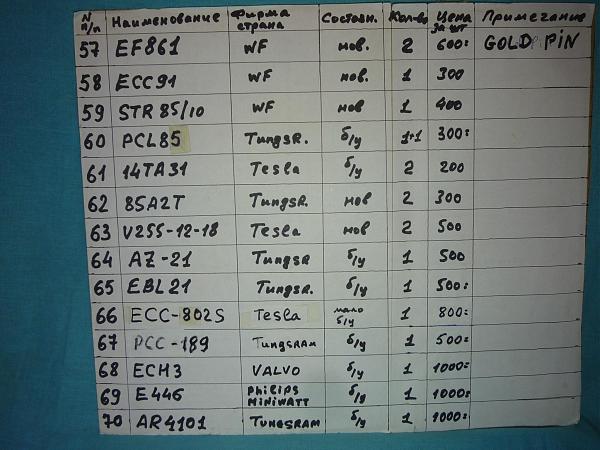 N п/п Наименование Фирма страна Состоян. Кол-во Цена за шт Примечание
57 EF861 WF нов. 2 600= GOLD PIN
58 ECC91 WF нов. 1 300
59 STR 85/10 WF нов 1 400
60 PCL85 TungsR. б/у 1+1 300=
61 14TA31 Tesla б/у 2 200
62 85A2T TungsR. нов 2 300
63 V255-12-18 Tesla нов 2 500
64 AZ-21 TungsR б/у 1 500
65 EBL21 TungsR. б/у 1 500=
66 ECC-802S Tesla мало б/у 1 800=
67 PCC-189 TungsRAM б/у 1 500=
68 ECH3 VALVO б/у 1 1000=
69 E446 Philips MINIWATT б/у 1 1000=
70 AR4101 TUNGSRAM б/у 1 1000=